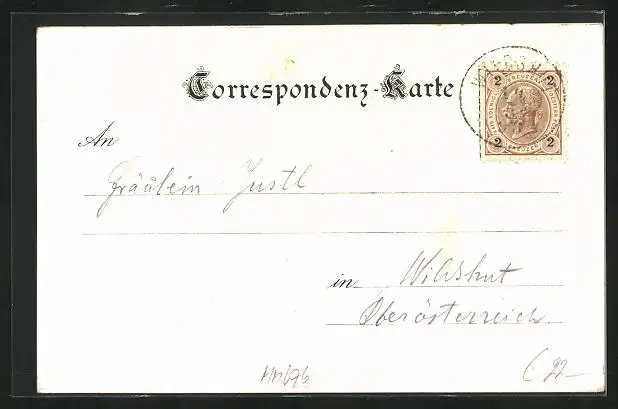 Correspondenz-Karte
2 KREUZER 2
2 KREUZER 2
An
Fräulein Justl
in Wildshut
Oberösterreich.